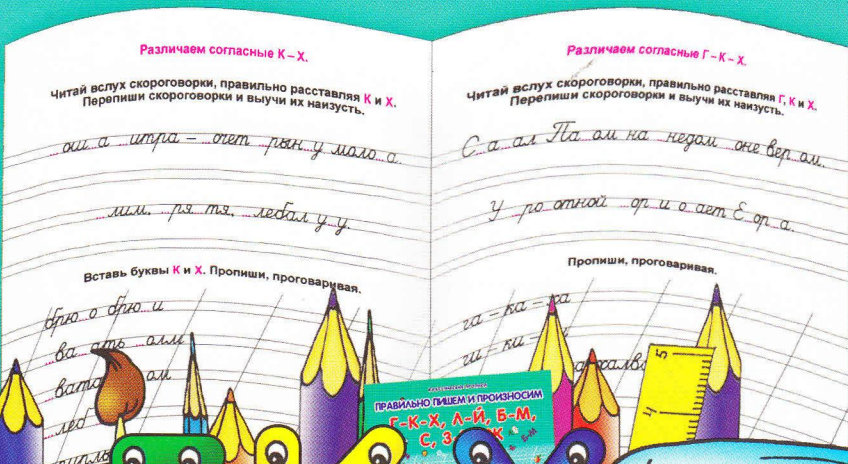 Различаем согласные К – Х.
Читай вслух скороговорки, правильно расставляя К и Х.
Перепиши скороговорки и выучи их наизусть.
...ош...а ...итра – ...очет ...рын...у моло...а.
...лим, ...ря...тя, ...лебал ...у...у.
Вставь буквы К и Х. Пропиши, проговаривая.
брю...о брю...и
...ва...ать ...олм
...вата... ...ом
...леб
Различаем согласные Г – К – Х.
Читай вслух скороговорки, правильно расставляя Г, К и Х.
Перепиши скороговорки и выучи их наизусть.
С...а...ал Па...ом на ...недом ...оне вер...ом.
У ...ро...отной ...ор...и о...ает Е...ор...а.
Пропиши, проговаривая.
га – ка – ха
ги – ки –
халв
5
4
ПРАВИЛЬНО ПИШЕМ И ПРОИЗНОСИМ
Г-К-Х, Л-Й, Б-М,
С, З
Б-М